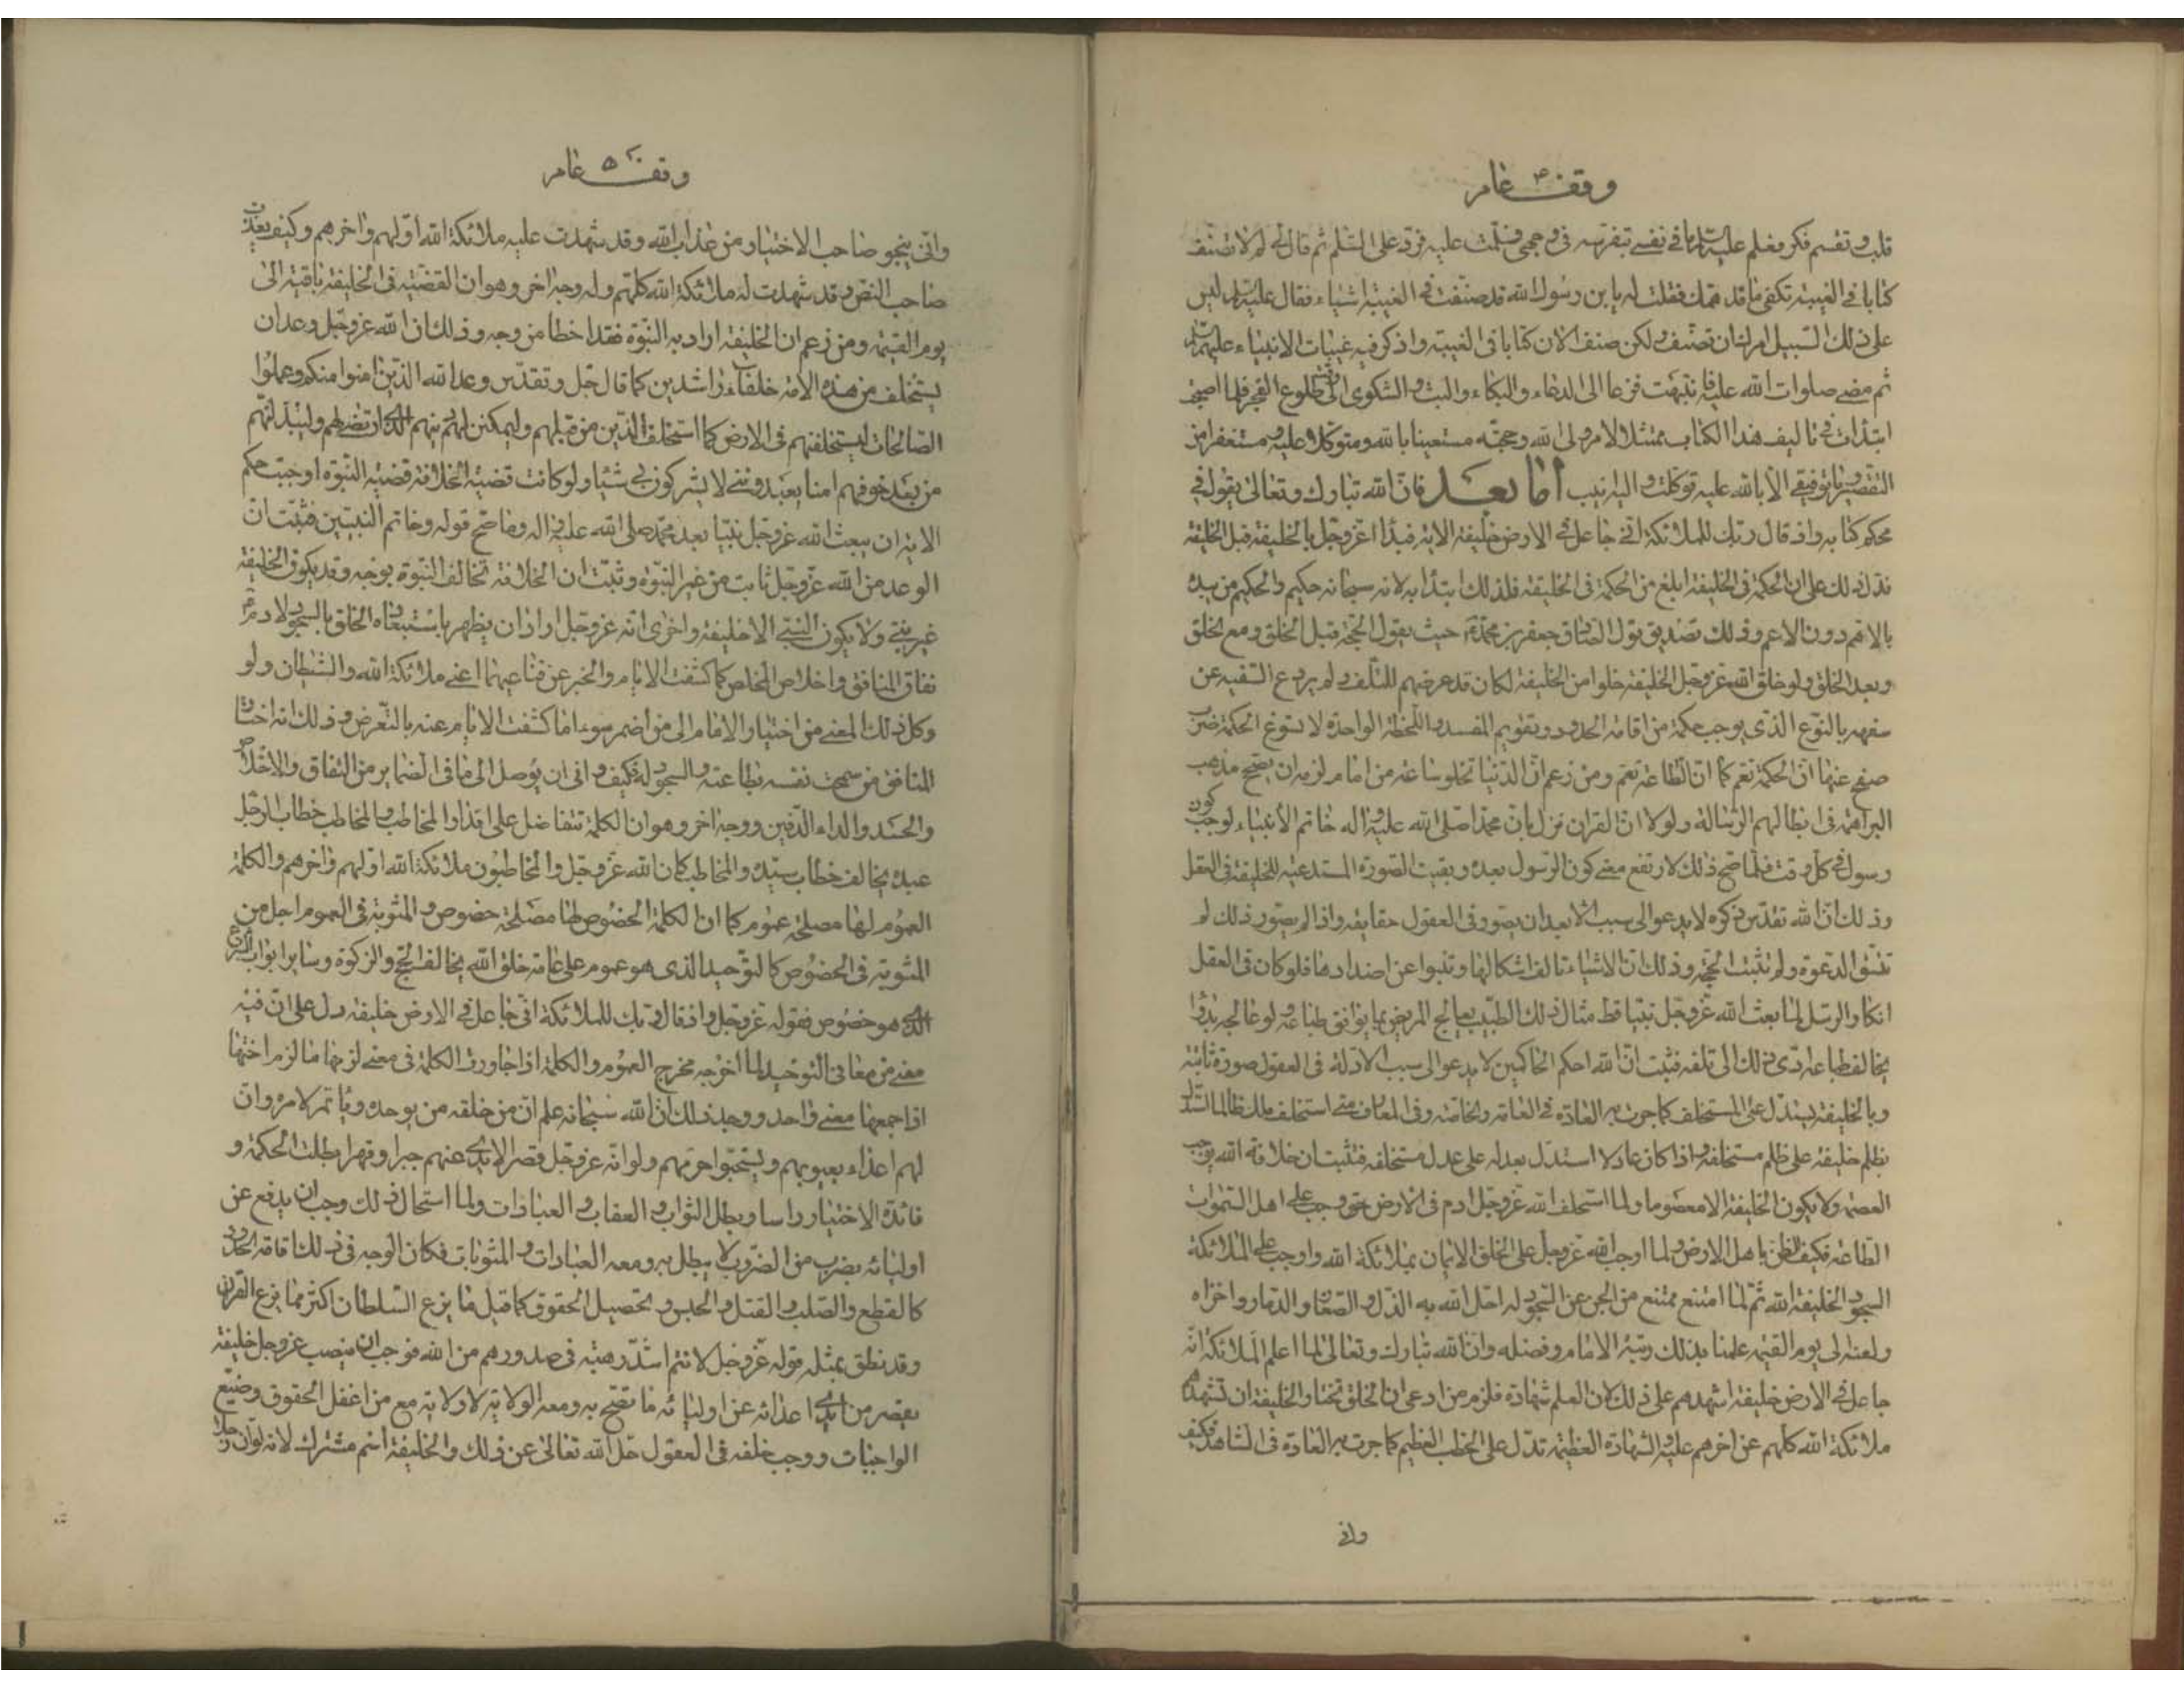 وقف ٤ عام
قلب وتقسم فكر فعلم عليه السلام ما في نفسي بتفرسه في وجهي فسلمت عليه فرد علي السلام ثم قال لي لم لا تصنف
كتابا في الغيبة تكفي ما قد همك فقلت له يا بن رسول الله قد صنفت في الغيبة اشياء فقال عليه السلام ليس
على ذلك السبيل امرك ان تصنف ولكن صنف الان كتابا في الغيبة واذكر فيه غيبات الانبياء عليهم السلام
ثم مضى صلوات الله عليه فانتبهت فزعا الى الدعاء والبكاء والبث والشكوى الى وقت طلوع الفجر فلما اصبحت
ابتدأت في تاليف هذا الكتاب ممتثلا لامر ولي الله وحجته مستعينا بالله ومتوكلا عليه ومستغفرا من
التقصير وما توفيقي الا بالله عليه توكلت واليه انيب اما بعد فان الله تبارك وتعالى يقول في
محكم كتابه واذ قال ربك للملائكة اني جاعل في الارض خليفة الاية فبدأ عز وجل بالخليفة قبل الخليقة
فدل ذلك على ان الحكمة في الخليفة ابلغ من الحكمة في الخليقة فلذلك ابتدأ به لانه سبحانه حكيم والحكيم من يبدء
بالاهم دون الاعم وذلك تصديق قول الصادق جعفر بن محمد ع حيث يقول الحجة قبل الخلق ومع الخلق
وبعد الخلق ولو خلق الله عز وجل الخليقة خلوا من الخليفة لكان قد عرضهم للتلف ولم يردع السفيه عن
سفهه بالنوع الذي يوجب حكمته من اقامة الحدود وتقويم المفسد واللحظة الواحدة لا تسوغ الحكمة ضرب
صفح عنها ان الحكمة تعم كما ان الطاعة تعم ومن زعم ان الدنيا تخلو ساعة من امام لزمه ان يصحح مذهب
البراهمة في ابطالهم الرسالة ولولا ان القران نزل بان محمدا صلى الله عليه واله خاتم الأنبياء لوجب كون
رسول في كل وقت فلما صح ذلك لارتفع معنى كون الرسول بعده وبقيت الصورة المستدعية للخليفة في العقل
وذلك ان الله تقدس ذكره لا يدعو الى سبب الا بعد ان يصور في العقول حقايقه واذا لم يصور ذلك لم
تتسق الدعوة ولم تثبت الحجة وذلك ان الاشياء تالف اشكالها وتنبوا عن اضدادها فلو كان في العقل
انكار الرسل لما بعث الله عز وجل نبيا قط مثال ذلك الطبيب يعالج المريض بما يوافق طباعه ولو عالجه بدواء
يخالف طباعه ادى ذلك الى تلفه فثبت ان الله احكم الحاكمين لا يدعو الى سبب الا وله في العقول صورة ثابتة
وبالخليفة يستدل على المستخلف كما جرت به العادة في العامة والخاصة وفي المعارف متى استخلف ملك ظالما استدل
بظلم خليفته على ظلم مستخلفه واذا كان عادلا استدل بعدله على عدل مستخلفه فثبت ان خلافة الله توجب
العصمة ولا يكون الخليفة الا معصوما ولما استخلف الله عز وجل ادم في الارض حق وجب على اهل السموات
الطاعة فكيف الظن باهل الارض ولما اوجب الله عز وجل على الخلق الايمان بملائكة الله واوجب على الملائكة
السجود لخليفة الله ثم لما امتنع ممتنع من الجن عن السجود له احل الله به الذل والصغار والدمار واخزاه
ولعنه الى يوم القيمة علمنا بذلك رتبة الامام وفضله وان الله تبارك وتعالى لما اعلم الملائكة انه
جاعل في الارض خليفة اشهدهم على ذلك لان العلم شهادة فلزم من ادعى ان الخلق تختار الخليفة ان تشهد
ملائكة الله كلهم عن اخرهم عليه والشهادة العظيمة تدل على الخطب العظيم كما جرت به العادة في الشاهد فكيف
واني
وقف ٥ عام
واني ينجو صاحب الاختيار من عذاب الله وقد شهدت عليه ملائكة الله اولهم واخرهم وكيف يعذب
صاحب النص وقد شهدت له ملائكة الله كلهم وله وجه اخر وهو ان القضية في الخليفة باقية الى
يوم القيمة ومن زعم ان الخليفة اراد به النبوة فقد اخطا من وجه وذلك ان الله عز وجل وعد ان
يستخلف من هذه الامة خلفاء راشدين كما قال جل وتقدس وعد الله الذين امنوا منكم وعملوا
الصالحات ليستخلفنهم في الارض كما استخلف الذين من قبلهم وليمكنن لهم دينهم الذي ارتضى لهم وليبدلنهم
من بعد خوفهم امنا يعبدونني لا يشركون بي شيئا ولو كانت قضية الخلافة قضية النبوة اوجبت حكم
الاية ان يبعث الله عز وجل نبيا بعد محمد صلى الله عليه واله وما صح قوله وخاتم النبيين فثبت ان
الوعد من الله عز وجل ثابت من غير النبوة وثبت ان الخلافة تخالف النبوة بوجه وقد يكون الخليفة
غير نبي ولا يكون النبي الا خليفة واخرى انه عز وجل اراد ان يظهر باستبعاده الخلق بالسجود لادم ع
نفاق المنافق واخلاص المخلص كما كشفت الايام والخبر عن قناعيهما اعني ملائكة الله والشيطان ولو
وكل ذلك المعنى من اختيار الامام الى من اضمر سوءا لما كشفت الايام عنه بالتعرض وذلك انه اختار
المنافق من سمحت نفسه بطاعته والسجود له فكيف واني ان يوصل الى ما في الضماير من النفاق والاخلاص
والحسد والداء الدفين ووجه اخر وهو ان الكلمة تتفاضل على اقدار المخاطب والمخاطب خطاب الرجل
عبده يخالف خطاب سيده والمخاطب كان الله عز وجل والمخاطبون ملائكة الله اولهم واخرهم والكلمة
العموم لها مصلحة عموم كما ان الكلمة الخصوص لها مصلحة خصوص والمثوبة في العموم اجل من
المثوبة في الخصوص كالتوحيد الذي هو عموم على عامة خلق الله يخالف الحج والزكوة وساير ابواب الشرع
الذي هو خصوص فقوله عز وجل واذ قال ربك للملائكة اني جاعل في الارض خليفة دل على ان فيه
معنى من معاني التوحيد لما اخرجه مخرج العموم والكلمة اذا جاورت الكلمة في معنى لزمها ما لزم اختها
اذا جمعهما معنى واحد ووجه ذلك ان الله سبحانه علم ان من خلقه من يوحده وياتمر لامره وان
لهم اعداء يعيبونهم ويستحبوا حرمهم ولو انه عز وجل قصر الايدي عنهم جبرا وقهرا لبطلت الحكمة و
فائدة الاختيار راسا وبطل الثواب والعقاب والعبادات ولما استحال ذلك وجب ان يدفع عن
اوليائه بضرب من الضروب لا يبطل به ومعه العبادات والمثوبات فكان الوجه في ذلك اقامة الحدود
كالقطع والصلب والقتل والحبس وتحصيل الحقوق كما قيل ما يزع السلطان اكثر مما يزع القران
وقد نطق بمثله قوله عز وجل لانتم اشد رهبة في صدورهم من الله فوجب ان ينصب عز وجل خليفة
يقصر من ايدي اعدائه عن اوليائه ما تصح به ومعه الولاية لا ولاية مع من اغفل الحقوق وضيع
الواجبات ووجب خلعه في العقول جل الله تعالى عن ذلك والخليفة اسم مشترك لانه لو ان رجلا